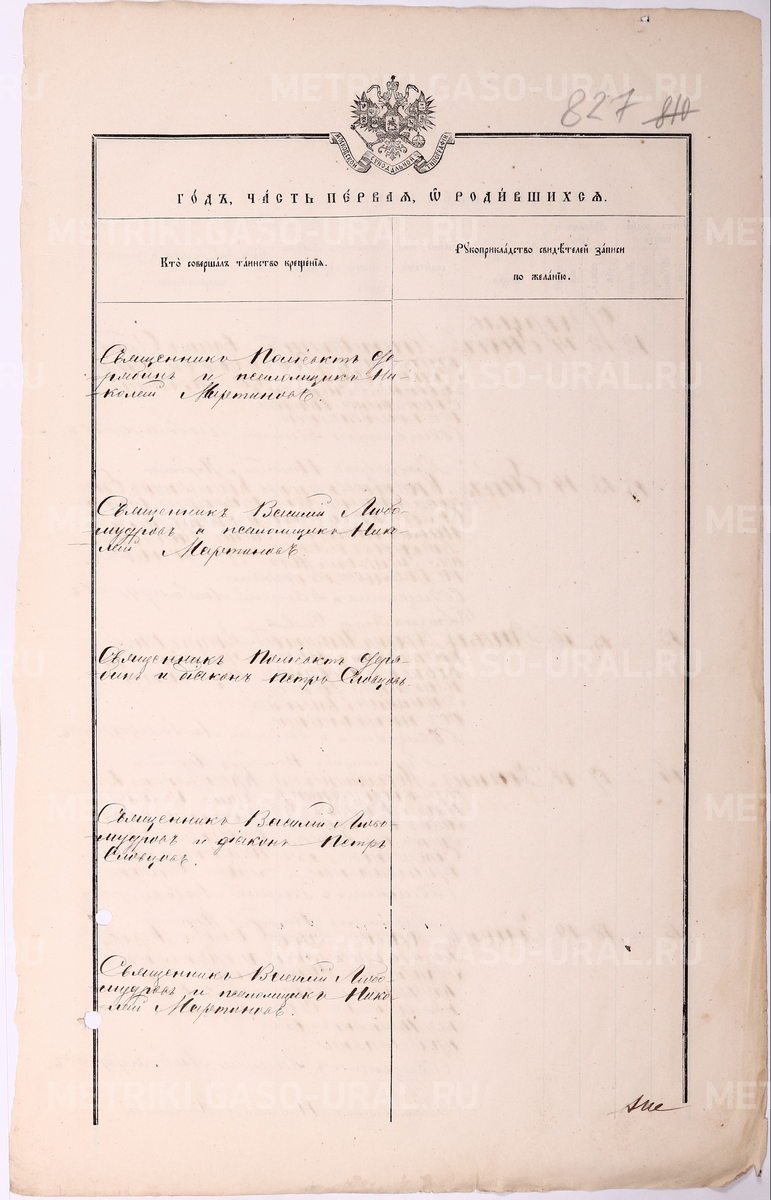 827 810
МОСКОВСКОЙ СУНОДАЛЬНОЙ ТИПОГРАФІИ
ГО́ДЪ, ЧА́СТЬ ПЕ́РВАѦ, Ѽ РОДИ́ВШИХСѦ.
Кто̀ совершалъ та́инство креще́нїѧ.
Рꙋкоприкла́дство свидѣ́телей за́писи
по жела́нїю.
Священникъ Поліевктъ Фе-
рябинъ и псаломщикъ Ни-
колай Мартиновъ.
Священникъ Василій Любо-
мудровъ и псаломщикъ Нико-
лай Мартиновъ
Священникъ Поліевктъ Феря-
бинъ и діаконъ Петръ Словцовъ.
Священникъ Василій Любо-
мудровъ и діаконъ Петръ
Словцовъ.
Священникъ Василій Любо-
мудровъ и псаломщикъ Нико-
лай Мартиновъ.
METRIKI.GASO-URAL.RU